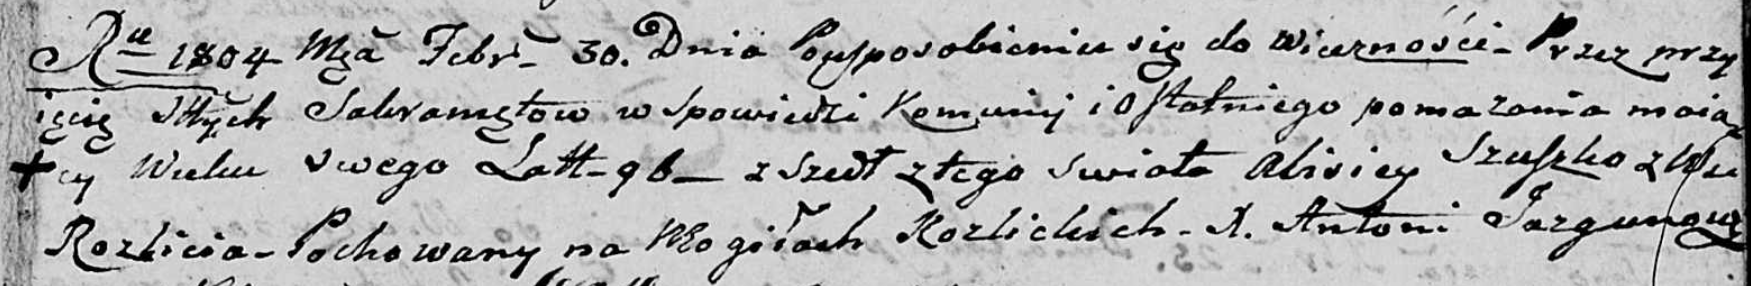 Ru 1804 Mςa Febr. 30. Dnia Pousposobieniu się do wieczności - Przez przy
ięcię Sttych Sakramętow w Spowiedzi Komunij i Ostatniego pomazania maią
cy Wieku swego Latt - 96 - zszedł z tego swiata Alixiey Szuszko z Wsi
Rozlicia - Pochowany na Mogiłach Kozlickich - X. Antoni